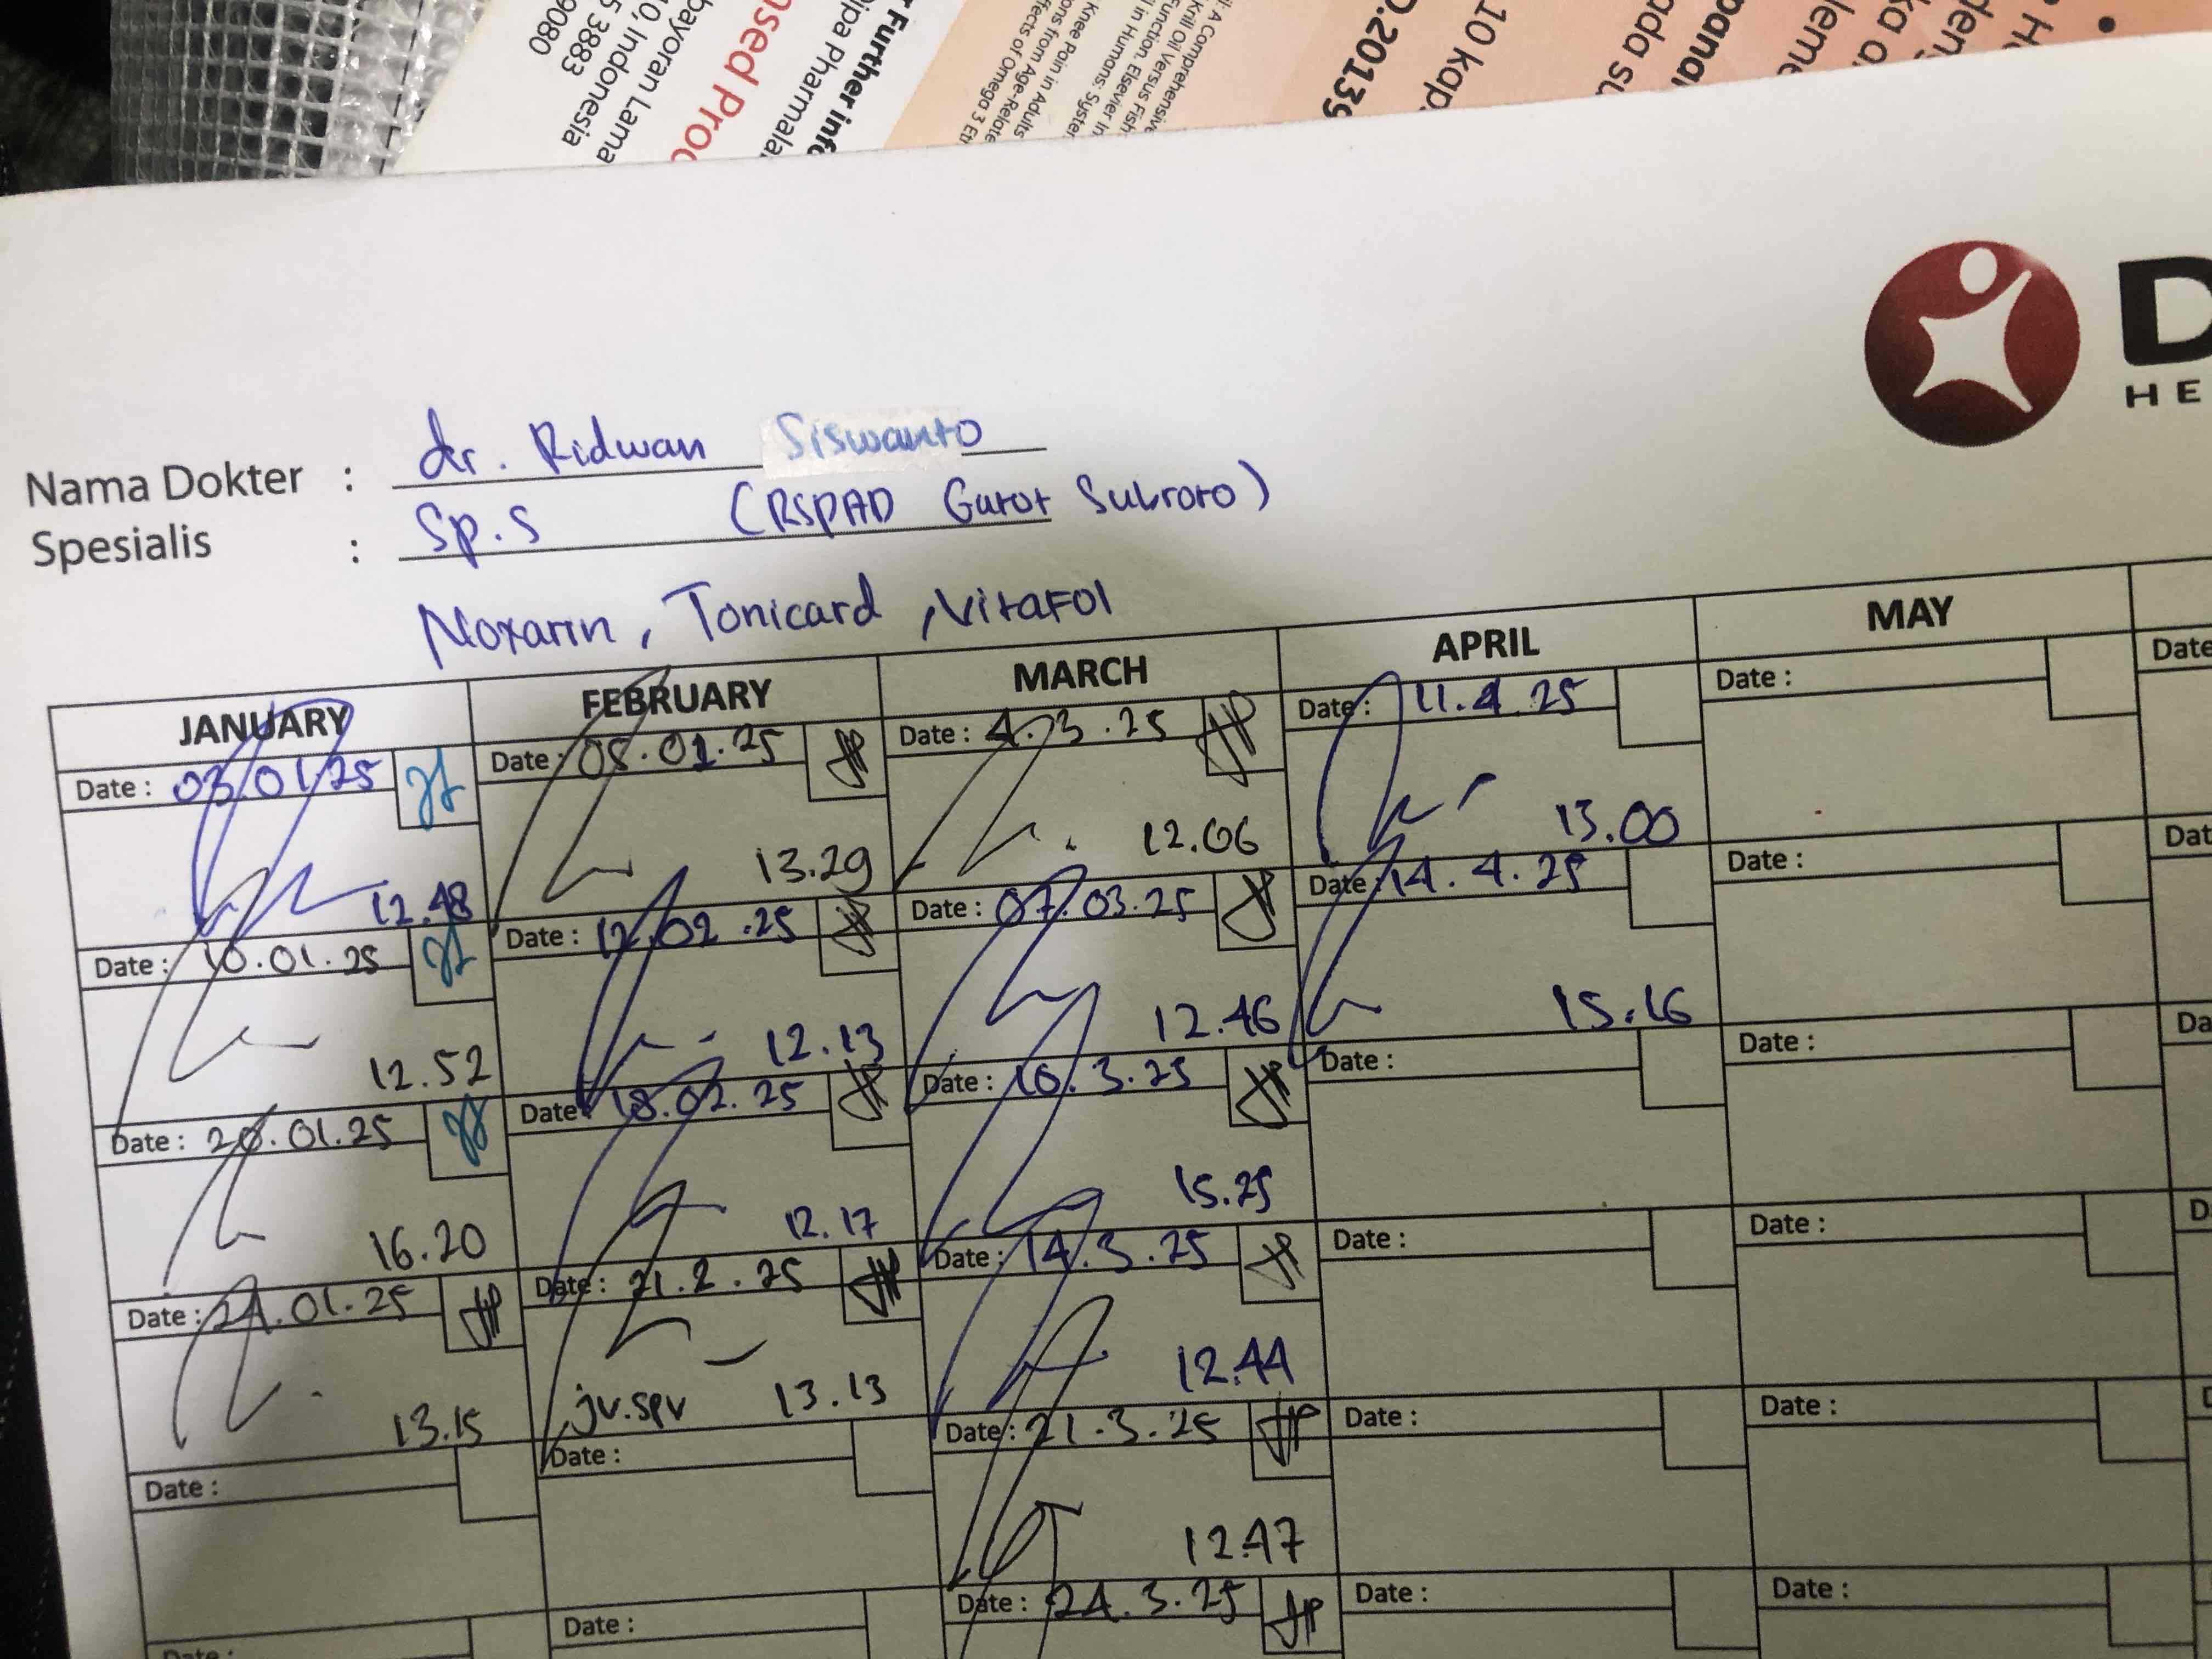 9080
5 3883
10, Indonesia
bayoran Lama
nsed Proc
ipa Pharmala
r Further info
ffects of Omega 3 Et
ons from Age-Relate
Knee Pain in Adults
l in Humans. Syster
Function. Elsevier In
Krill Oil Versus Fish
l: A Comprehensive
D.20139
10 kap
ada su
pana
leme
ka a
den
D
HE
Nama Dokter : dr. Ridwan Siswanto
Spesialis : Sp.S (RSPAD Gatot Subroto)
Noxarin, Tonicard, Vitafol
JANUARY
Date : 03.01.25
12.48
Date : 10.01.25
12.52
Date : 20.01.25
16.20
Date : 24.01.25
13.15
Date :
Date :
FEBRUARY
Date : 05.02.25
13.29
Date : 12.02.25
12.13
Date : 18.02.25
12.17
Date : 21.2.25
jv.spv 13.13
Date :
Date :
MARCH
Date : 4.3.25
12.06
Date : 07.03.25
12.46
Date : 10.3.25
15.25
Date : 14.3.25
12.44
Date : 21.3.25
12.47
Date : 24.3.25
APRIL
Date : 11.4.25
13.00
Date : 14.4.25
15.16
Date :
Date :
Date :
Date :
MAY
Date :
Date :
Date :
Date :
Date :
Date :
Date
Dat
Da
D